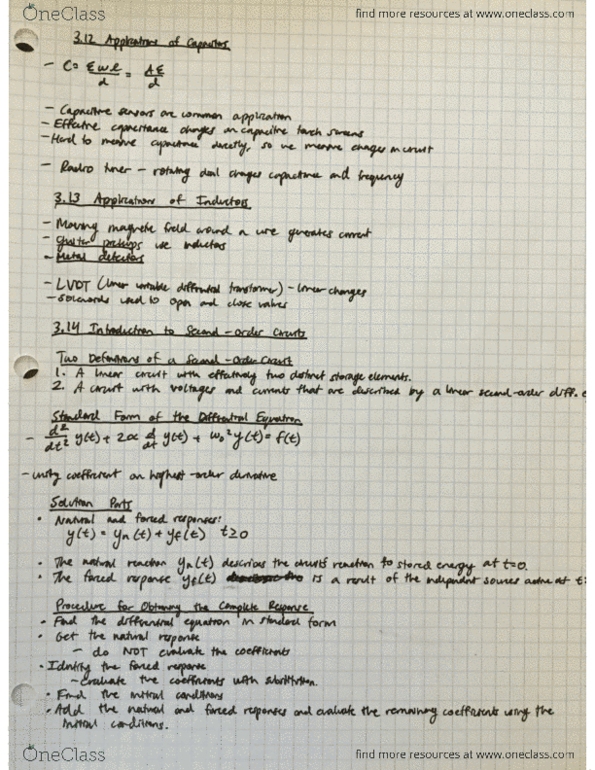 OneClass
find more resources at www.oneclass.com
3.12 Applications of Capacitors
- C = εwl/d = Aε/d
- Capacitive sensors are common application
- Effective capacitance changes on capacitive touch screens
- Hard to measure capacitance directly, so we measure changes in circuit
- Radio tuner - rotating dial changes capacitance and frequency
3.13 Applications of Inductors
- Moving magnetic field around a wire generates current
- Guitar pickups use inductors
- Metal detectors
- LVDT (linear variable differential transformer) - linear changes
- Solenoids used to open and close valves
3.14 Introduction to Second-Order Circuits
Two Definitions of a Second-Order Circuit
1. A linear circuit with effectively two distinct storage elements.
2. A circuit with voltages and currents that are described by a linear second-order diff.
Standard Form of the Differential Equation
- d²/dt² y(t) + 2α d/dt y(t) + ω₀² y(t) = f(t)
- unity coefficient on highest-order derivative
Solution Parts
• Natural and forced responses:
y(t) = yn(t) + yf(t) t≥0
• The natural reaction yn(t) describes the circuit's reaction to stored energy at t=0.
• The forced response yf(t) is a result of the independent sources active at t
Procedure for Obtaining the Complete Response
• Find the differential equation in standard form
• Get the natural response
- do NOT evaluate the coefficients
• Identify the forced response
- Evaluate the coefficients with substitution.
• Find the initial conditions
• Add the natural and forced responses and evaluate the remaining coefficients using the
initial conditions.
OneClass
find more resources at www.oneclass.com